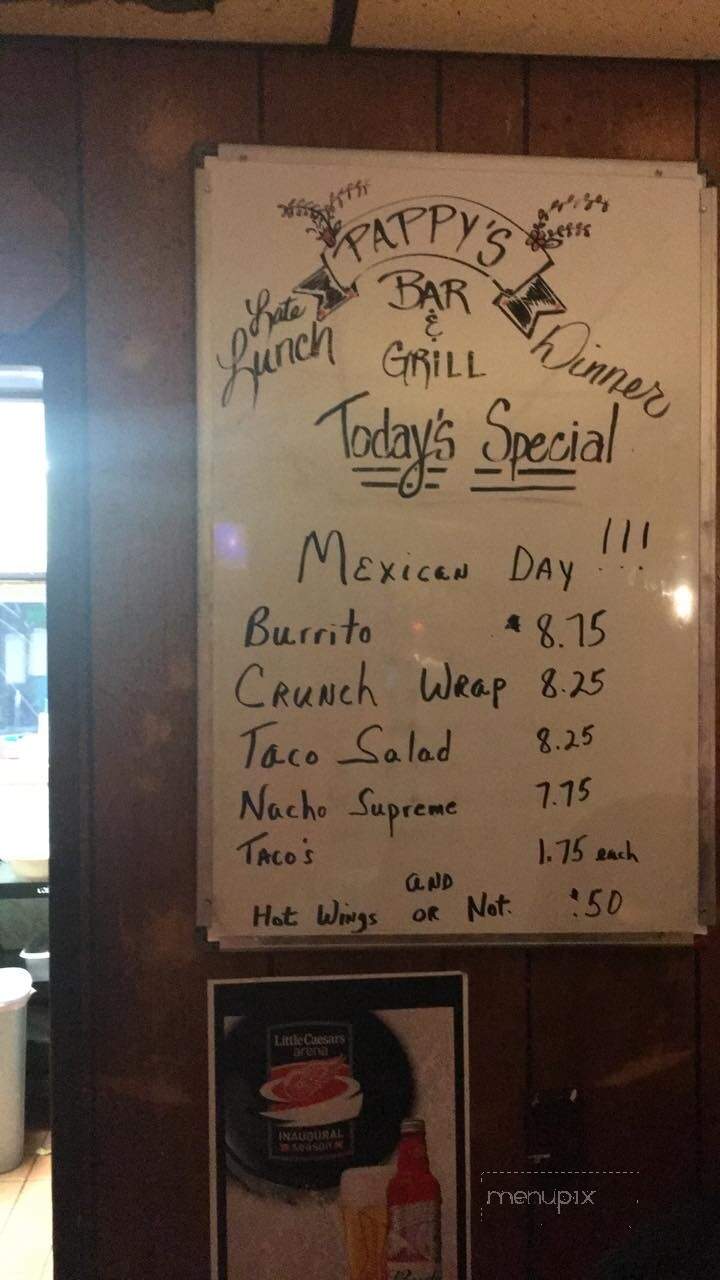 PAPPY'S
BAR
&
GRILL
Late
Lunch
Dinner
Today's Special
MEXICAN DAY !!!
Burrito 8.75
CRUNCH WRAP 8.25
Taco Salad 8.25
Nacho Supreme 7.75
TACO'S 1.75 each
AND
Hot Wings OR Not. .50
Little Caesars
arena
INAUGURAL
SEASON
menupix